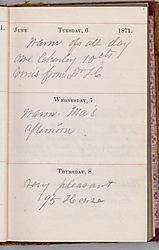 JUNE TUESDAY, 6 1871.
Warm do all day
one Charley 10 cts
from Dr H
WEDNESDAY, 7
Warm Ma's
afternoon
THURSDAY, 8
Very pleasant
95 House